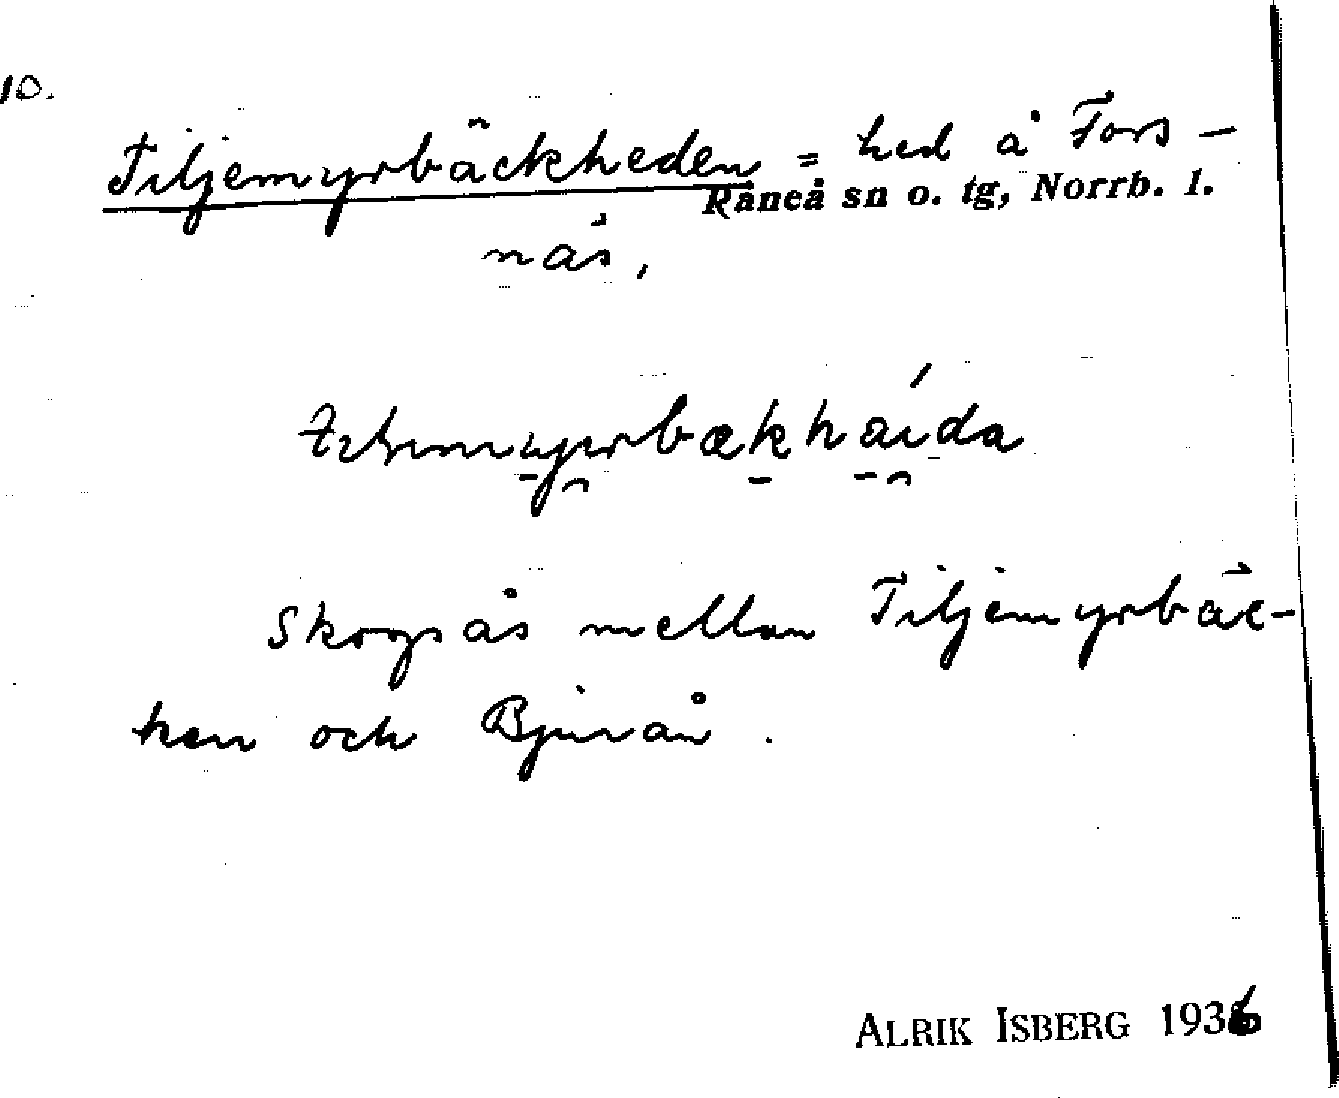 10.
Tiljemyrbäckheden = hed å Fors-
Råneå sn o. tg, Norrb. l.
näs.
Skogsås mellan Tiljemyrbäc-
ken och Bjurån.
ALRIK ISBERG 1936